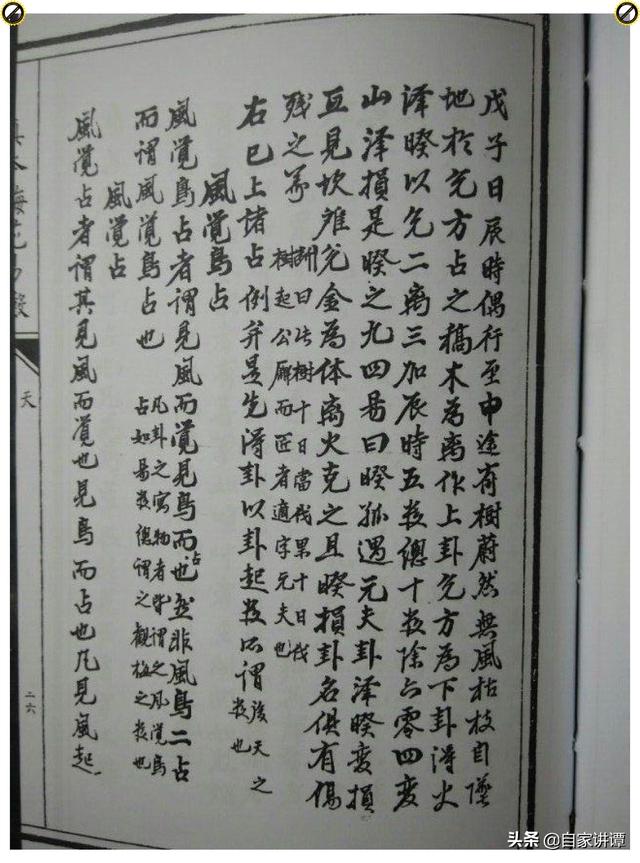 戊子日辰時偶行至中途有樹蔚然無風枯枝自墜
地於兌方占之槁木為離作上卦兌方為下卦得火
澤睽以兌二離三加辰時五数總十数除六零四変
山澤損是睽之九四易曰睽孤遇元夫卦澤睽変損
互見坎離兌金為体離火克之且睽損卦名俱有傷
残之義
断曰此樹十日當伐果十日伐
樹起公廨而匠者適字元夫也
右已上諸占例并是先得卦以卦起数所謂
後天之
数也
風覺鳥占
風覺鳥占者謂見風而覺見鳥而占也並非風鳥二占
而謂風覺鳥占也
凡卦之寓物者皆謂之風覺鳥
占如易数總謂之觀梅之数也
風覺占
風覺占者謂其見風而覺也見鳥而占也凡見風起
梅花易数
天
二六
头条 @自家讲谭